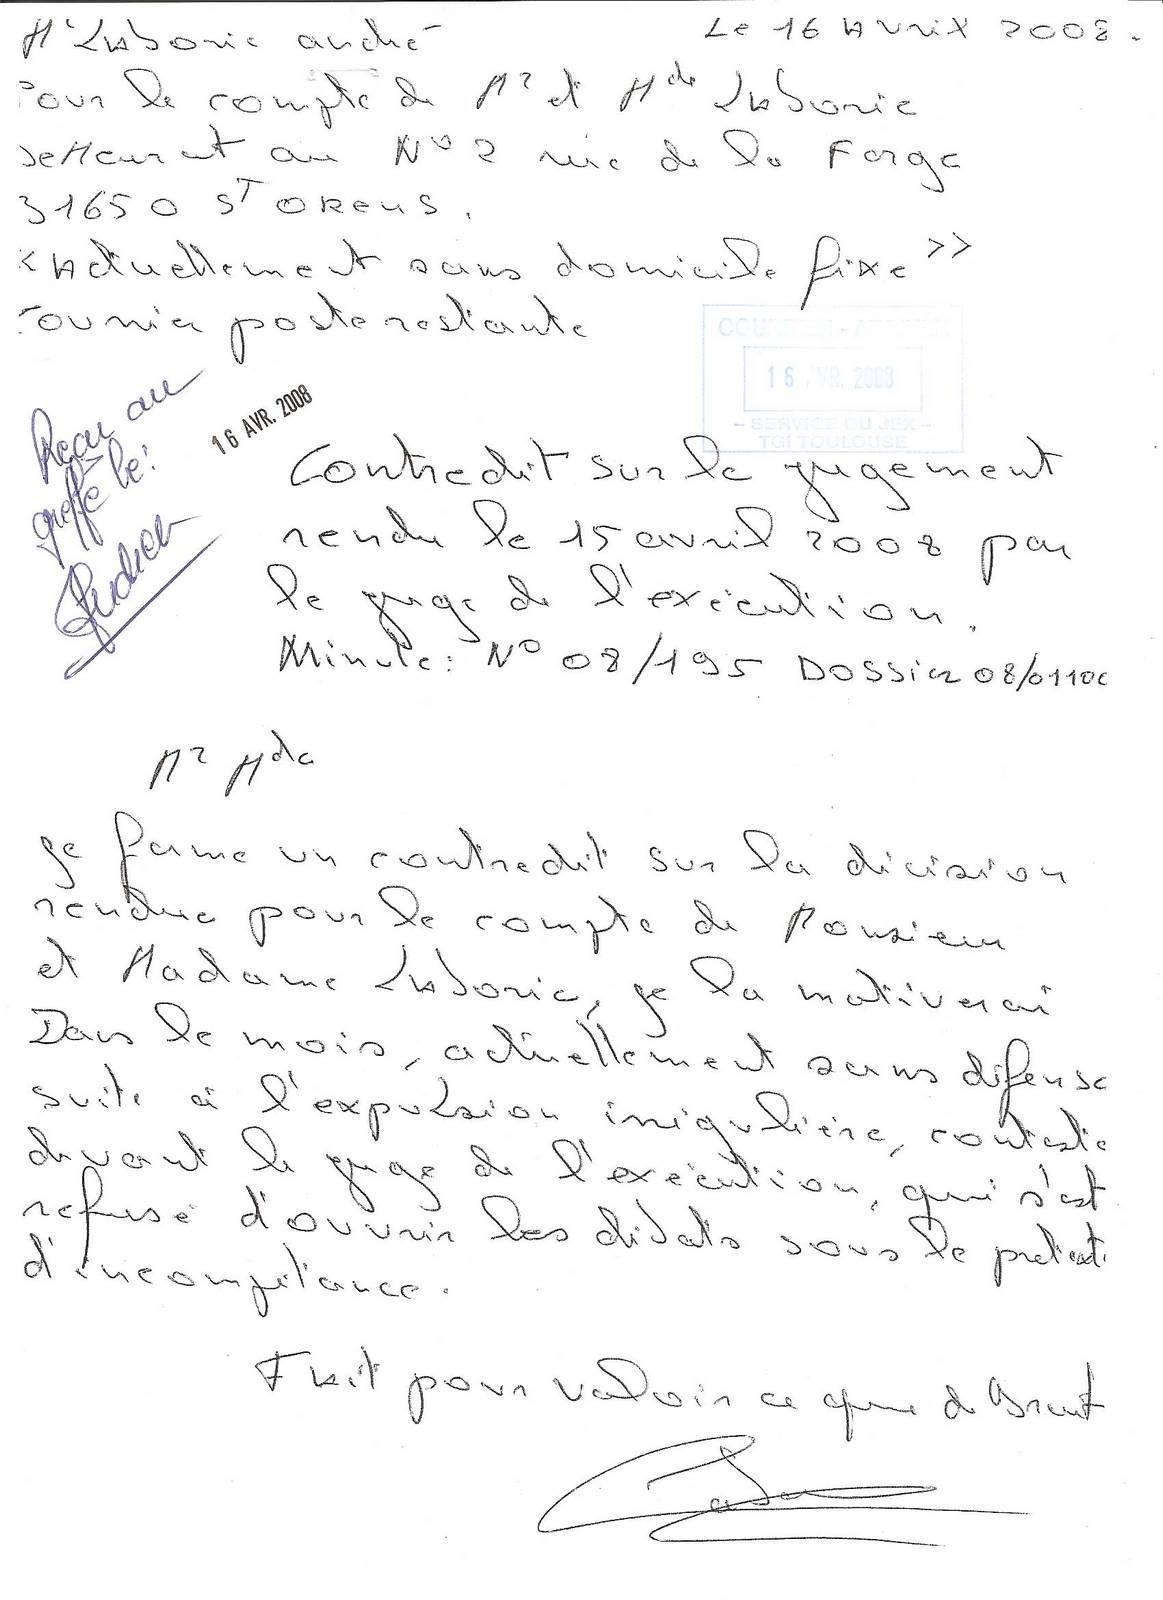 Mr Laborie andré Le 16 Avril 2008.
Pour le compte de Mr et Mde Laborie
demeurant au N° 2 rue de la Forge
31650 St OREns.
"Actuellement sans domicile fixe"
Courrier poste restante
COURRIER - ARRIVÉE
16 AVR. 2008
- SERVICE DU JEX -
TGI TOULOUSE
Recu au
greffe le:
16 AVR. 2008
Contredit sur le jugement
rendu le 15 avril 2008 par
le juge de l'exécution.
Minute: N° 08/195 Dossier 08/01100
Mr Mde
je forme un contredit sur la décision
rendue pour le compte de Monsieur
et Madame Laborie, je la motiverai
Dans le mois, actuellement sans défense
suite à l'expulsion irrégulière, contestée
devant le juge de l'exécution, qui s'est
refusé d'ouvrir les débats sous le prétexte
d'incompétance.
Fait pour valoir ce que de Droit